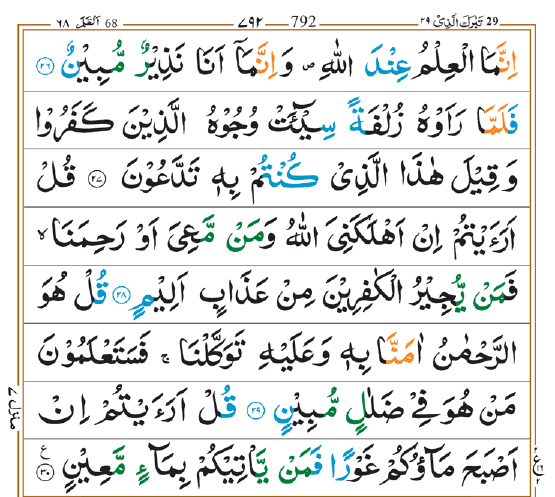 29 تَبٰرَكَ الَّذِىْ ٢٩ 792 ٧٩٢ 68 اَلْقَلَمُ ٦٨
اِنَّمَا الْعِلْمُ عِنْدَ اللّٰهِ ۖ وَاِنَّمَاۤ اَنَا نَذِيْرٌ مُّبِيْنٌ ۝٢٦
فَلَمَّا رَاَوْهُ زُلْفَةً سِيْٓـَٔتْ وُجُوْهُ الَّذِيْنَ كَفَرُوْا
وَ قِيْلَ هٰذَا الَّذِىْ كُنْتُمْ بِهٖ تَدَّعُوْنَ ۝٢٧ قُلْ
اَرَءَيْتُمْ اِنْ اَهْلَكَنِىَ اللّٰهُ وَمَنْ مَّعِىَ اَوْ رَحِمَنَا ۙ
فَمَنْ يُّجِيْرُ الْكٰفِرِيْنَ مِنْ عَذَابٍ اَلِيْمٍ ۝٢٨ قُلْ هُوَ
الرَّحْمٰنُ اٰمَنَّا بِهٖ وَعَلَيْهِ تَوَكَّلْنَا ۚ فَسَتَعْلَمُوْنَ
مَنْ هُوَ فِىْ ضَلٰلٍ مُّبِيْنٍ ۝٢٩ قُلْ اَرَءَيْتُمْ اِنْ
اَصْبَحَ مَآؤُكُمْ غَوْرًا فَمَنْ يَّاْتِيْكُمْ بِمَآءٍ مَّعِيْنٍ ۝٣٠ ع
منزل ٧